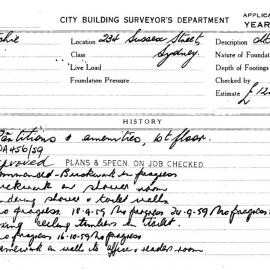 CITY BUILDING SURVEYOR'S DEPARTMENT
APPLICA
YEAR
Location 234 Sussex Street, Description
Class Sydney. Nature of Founda
Live Load Depth of Footings
Foundation Pressure Checked by
Estimate £12
HISTORY
Partitions & amenities, 1st floor.
DA 456/59
Approved PLANS & SPECN. ON JOB CHECKED
Commenced - Brickwork in progress
Brickwork in shower room
Rendering shower & toilet walls
No progress 18-9-59 No progress 24-9-59 No progress
Fixing ceiling timbers in toilet.
No progress 16-10-59 No progress
Framework in walls to office & room